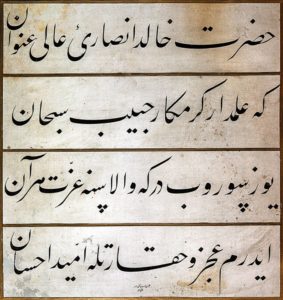 حضرت خالد انصارئ عالى عنوان
كه علمدار كرمكار حبيب سبحان
يوز سوروب دركه والاسنه عزت هر آن
ايدرم عجز و حقارتله اميد احسان